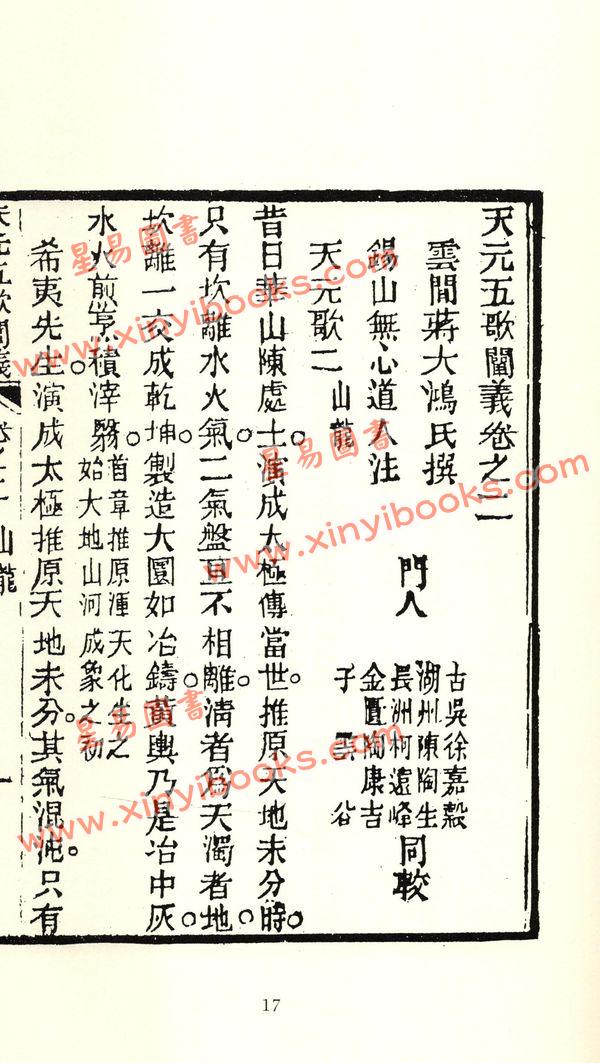 天元五歌闡義卷之二
雲間蔣大鴻氏撰
錫山無心道人注
門人
古吳徐嘉穀
湖州陳陶生
長洲柯遠峰
金匱陶康吉
子雲谷
同較
天元歌二 山龍
昔日華山陳處士。演成太極傳當世。推原天地未分時。
只有坎離水火氣。二氣盤亘不相離。清者爲天濁者地。
坎離一交成乾坤。製造大圜如冶鑄。黃輿乃是冶中灰。
水火煎烹積滓
首章推原渾天化生之
始大地山河成象之初
希夷先生演成太極推原天地未分。其氣混沌。只有
天元五歌闡義
卷之二 山龍
一
星易图書
www.xinyibooks.com
星易图書
www.xinyibooks.com
星易图書
www.xinyibooks.com
17